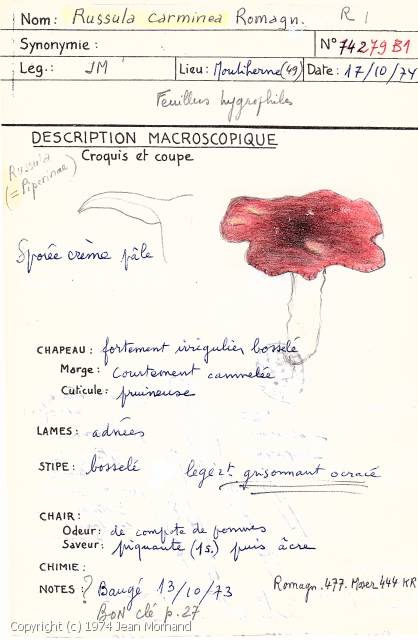 Nom: Russula carminea Romagn. R 1
Synonymie : N° 74279B1
Leg.: JM Lieu: Mouliherne (49) Date: 17/10/74
Feuillus hygrophiles
DESCRIPTION MACROSCOPIQUE
Croquis et coupe
Russula
(= Piperinae)
Sporée crème pâle
CHAPEAU : fortement irrégulier bosselé
Marge : courtement cannelée
Cuticule : pruineuse
LAMES : adnées
STIPE : bosselé legèrt. grisonnant ocracé
CHAIR :
Odeur: de compote de pommes
Saveur: piquante (1s.) puis âcre
CHIMIE :
NOTES : ? Baugé 13/10/73 Romagn. 477. Moser 444 KR
BON clé p.27
Copyright (c) 1974 Jean Mornand